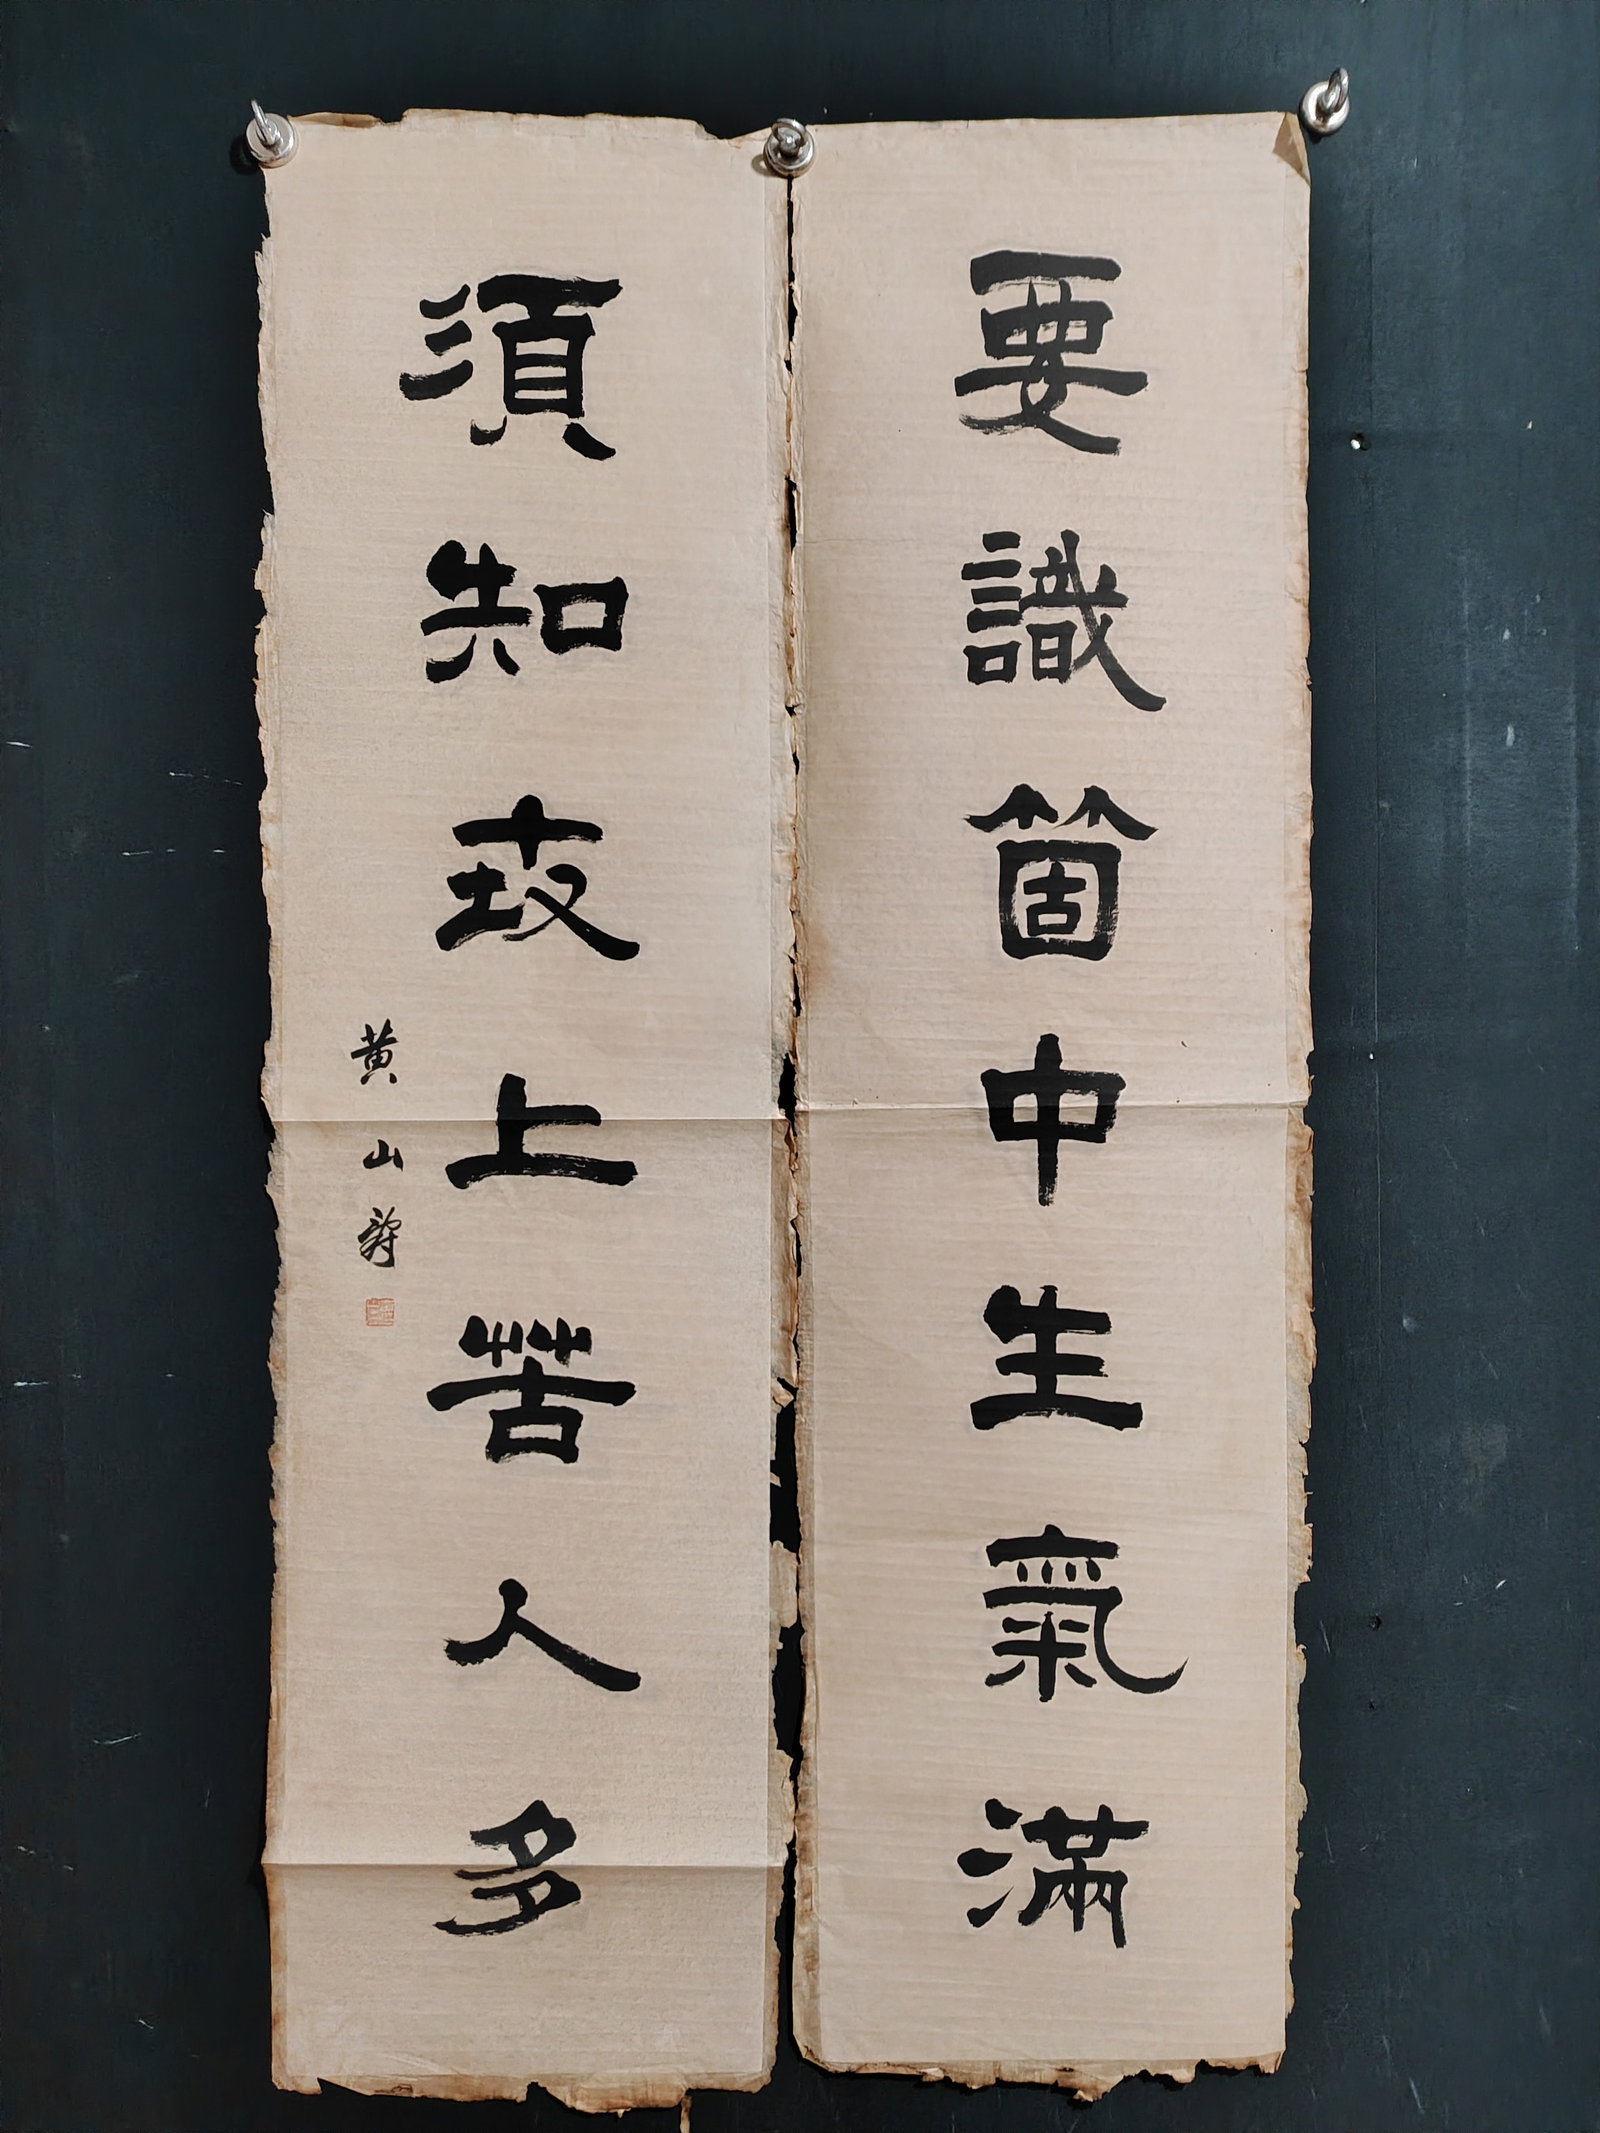 要識箇中生氣滿
須知上苦人多
黄山壽